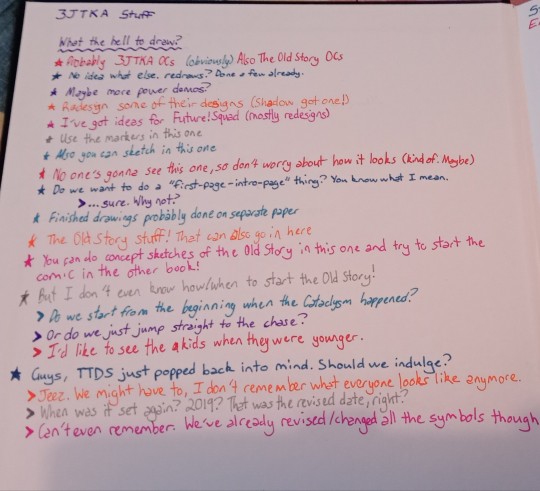 3JTKA Stuff
What the hell to draw?
★ Probably 3JTKA OCs (obviously) Also The Old Story OCs
★ No idea what else. redraws? Done a few already.
★ Maybe more power demos?
★ Redesign some of their designs (Shadow got one!)
★ I've got ideas for Future!Squad (mostly redesigns)
★ Use the markers in this one
★ Also you can sketch in this one
★ No one's gonna see this one, so don't worry about how it looks (kind of. Maybe)
★ Do we want to do a "first-page-intro-page" thing? You know what I mean.
>...sure. Why not?
★ Finished drawings probably done on separate paper
★ The Old Story stuff! That can also go in here
★ You can do concept sketches of the Old Story in this one and try to start the
comic in the other book!
★ But I don't even know how/when to start the Old Story!
> Do we start from the beginning when the Cataclysm happened?
> Or do we just jump straight to the chase?
> I'd like to see the kids when they were younger.
★ Guys, TTDS just popped back into mind. Should we indulge?
> Jeez. We might have to, I don't remember what everyone looks like anymore.
> When was it set again? 2019? That was the revised date, right?
> Can't even remember. We've already revised/changed all the symbols though